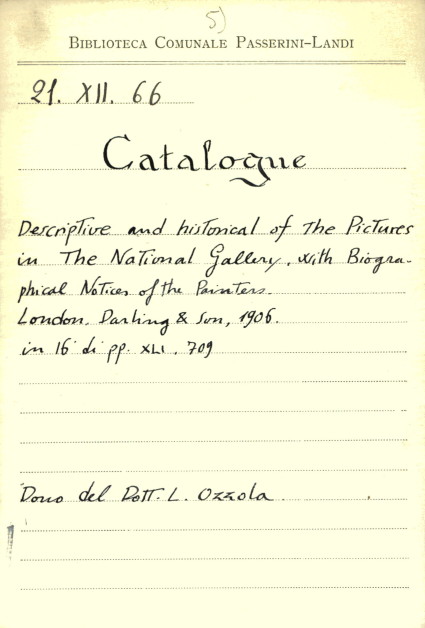 5)
BIBLIOTECA COMUNALE PASSERINI-LANDI
21. XII. 66
Catalogue
Descriptive and historical of the Pictures
in The National Gallery, with Biogra-
phical Notices of the Painters.
London. Darling & Son, 1906.
in 16° di pp. XLI, 709
Dono del Dott. L. Ozzola